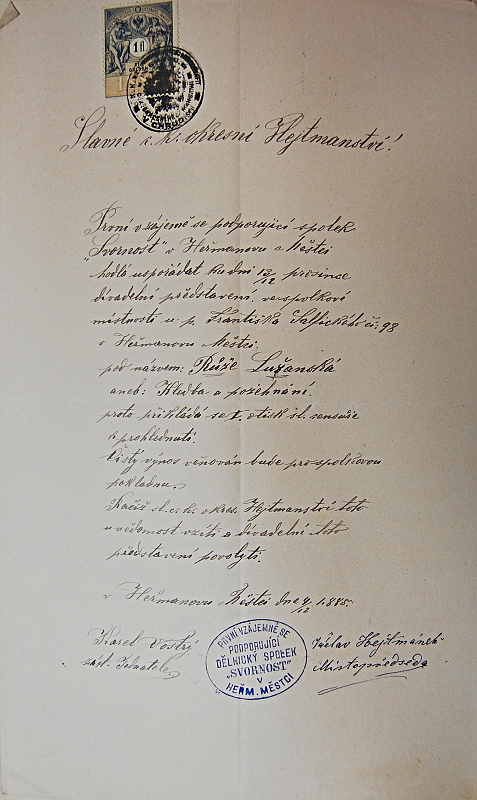 1 fl
Slavné c. k. okresní Hejtmanství!
První vzájemě se podporující spolek
"Svornost" v Heřmanovu Městci
hodlá uspořádat ku dni 12/12 prosince
divadelní představení ve spolkové
místnosti u p. Františka čís. 98
v Heřmanovu Městci.
pod názvem: Růže Lužanská
aneb: Kledba a požehnání.
proto přikládá se I. otisk sl. censuře
k prohlednutí.
čistý výnos věnován bude pro spolkovou
pokladnu.
Račiž sl. c. k. okres. Hejtmanství toto
u vědomost vzíti a divadelní toto
představení povolyti.
v Heřmanovu Městci dne 9/12 1885.
Karel Vostrý
zást. Jednatele
PRVNÍ VZÁJEMNĚ SE
PODPORUJÍCÍ
DĚLNICKÝ SPOLEK
„SVORNOST"
V
HEŘM. MĚSTCI
Václav Hejtmánek
Místopředseda